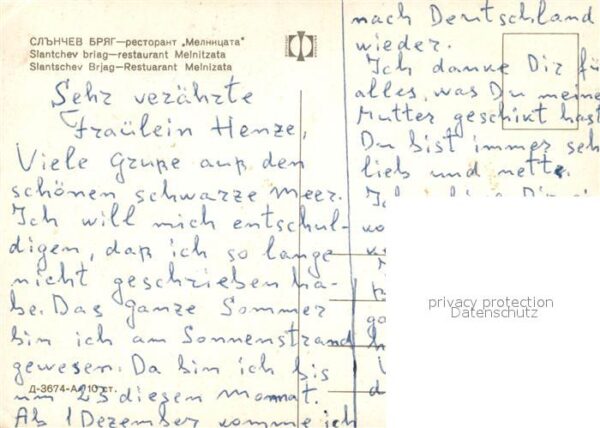 СЛЪНЧЕВ БРЯГ—ресторант „Мелницата"
Slantchev briag—restaurant Melnitzata
Slantschev Brjag—Restuarant Melnizata
Sehr verährte
Fräulein Henze,
Viele Gruße auß den
schönen schwarze Meer.
Ich will mich entschul-
digen, daß ich so lange
nicht geschrieben ha-
be. Das ganze Sommer
bin ich am Sonnenstrand
gewesen. Da bin ich bis
um 25 diesen Monnat.
Д-3674-А
Ab 1 Dezember komme ich
nach Deutschland
wieder.
Ich danke Dir fü
alles, was Du meine
Mutter geschikt hast
Du bist immer seh
lieb und nette.
privacy protection
Datenschutz